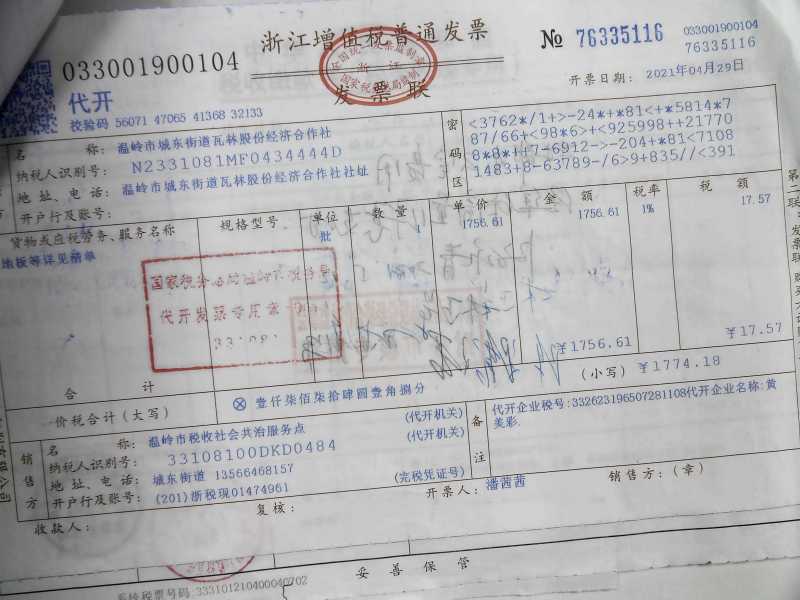 浙江增值税普通发票
发票联
033001900104
代开
校验码 56071 47065 41368 32133
№ 76335116
033001900104
76335116
开票日期： 2021年04月29日
名　　称：温岭市城东街道瓦林股份经济合作社
纳税人识别号：N2331081MF0434444D
地址、电话：温岭市城东街道瓦林股份经济合作社社址
开户行及账号：
密码区
<3762*/1+>-24*+*81<+*5814*7
87/66+<98*6>+<925998++21770
8*8*++7-6912->-204+*81<7108
1483+8-63789-/6>9+835//<391
货物或应税劳务、服务名称 规格型号 单位 数量 单价 金额 税率 税额
地板等详见清单 批 1 1756.61 1756.61 1% 17.57
代开发票专用章
合计 ￥1756.61 ￥17.57
价税合计（大写） ⊗ 壹仟柒佰柒拾肆圆壹角捌分 （小写）￥1774.18
销售方
名　　称：温岭市税收社会共治服务点 （代开机关）
纳税人识别号：33108100DKD0484 （代开机关）
地址、电话：城东街道 13566468157
开户行及账号：(201)浙税现01474961 （完税凭证号）
备注
代开企业税号:332623196507281108代开企业名称:黄
美彩
收款人：
复核：
开票人：潘茜茜
销售方：（章）
妥善保管
系统税票号码:333101210400040702